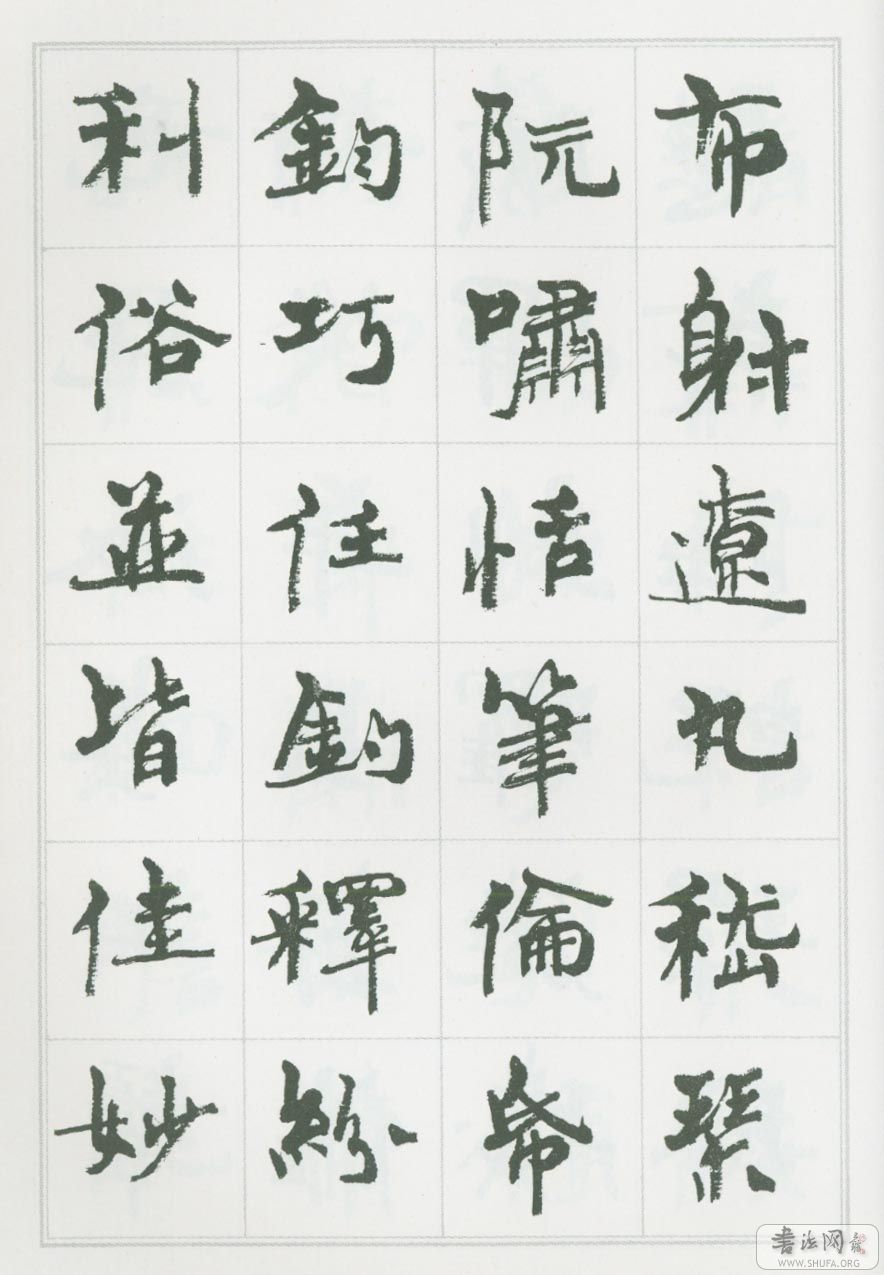 布射遼丸嵇琴
阮嘯恬筆倫帋
鈞巧任釣釋紛
利俗並皆佳妙
書法网
WWW.SHUFA.ORG